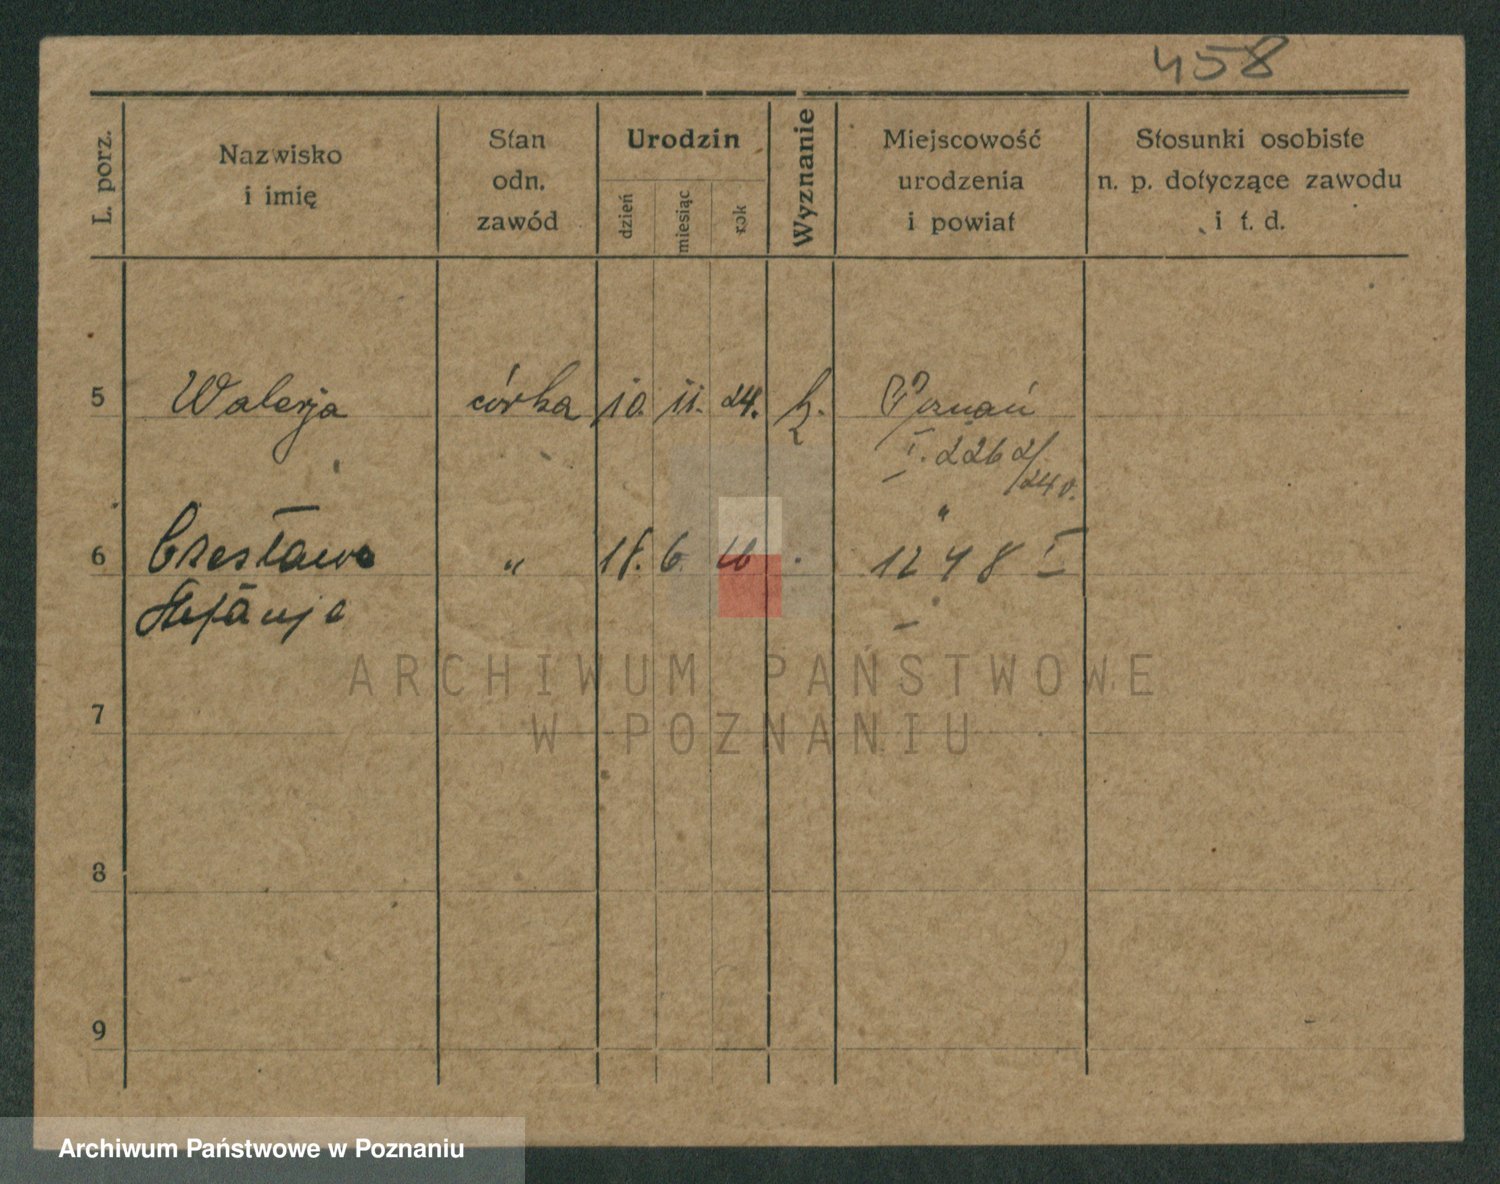 458
L. porz.
Nazwisko
i imię
Stan
odn.
zawód
Urodzin
dzień
miesiąc
rok
Wyznanie
Miejscowość
urodzenia
i powiat
Stosunki osobiste
n. p. dotyczące zawodu
i t. d.
5 Walerja córka 10. 11. 24. k. Poznań
I. 2262/24 v.
6 Czesława „ 18. 6. „
1248 I
Stefanja
7
8
9
ARCHIWUM PAŃSTWOWE
W POZNANIU
Archiwum Państwowe w Poznaniu